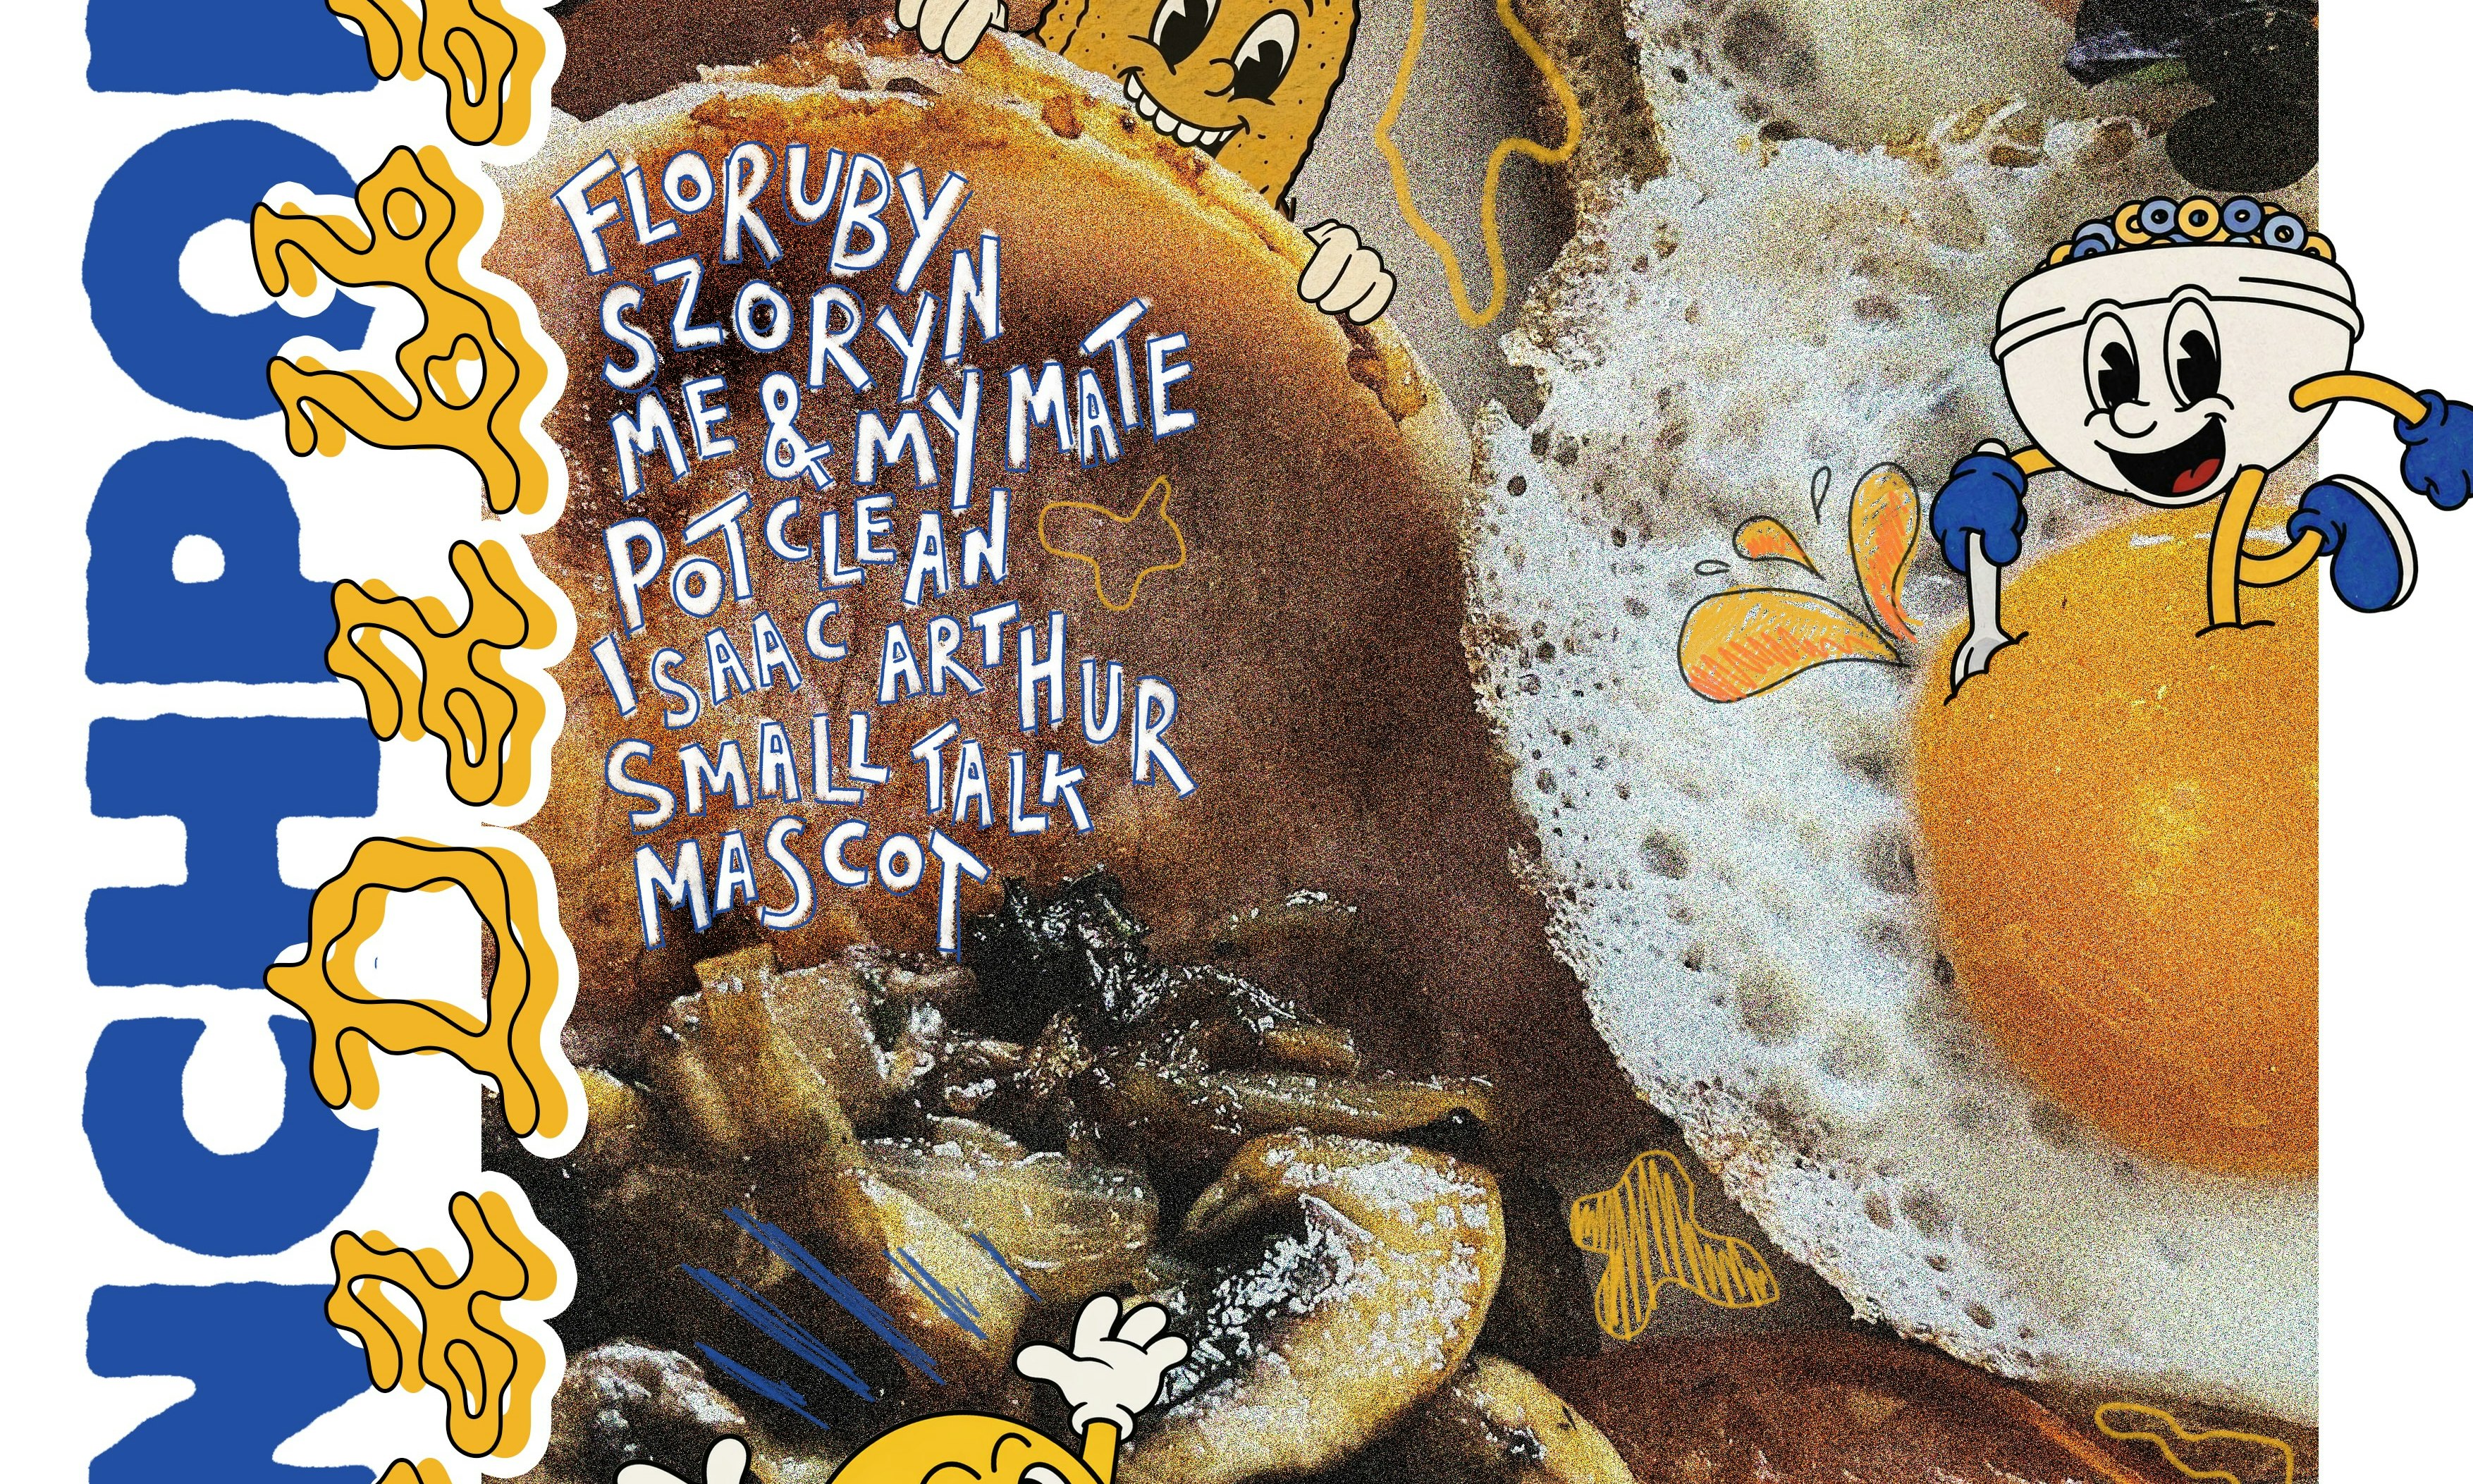 NCHPO
FLORUBY
SZORYN
ME & MY MATE
POTCLEAN
ISAAC ARTHUR
SMALL TALK
MASCOT